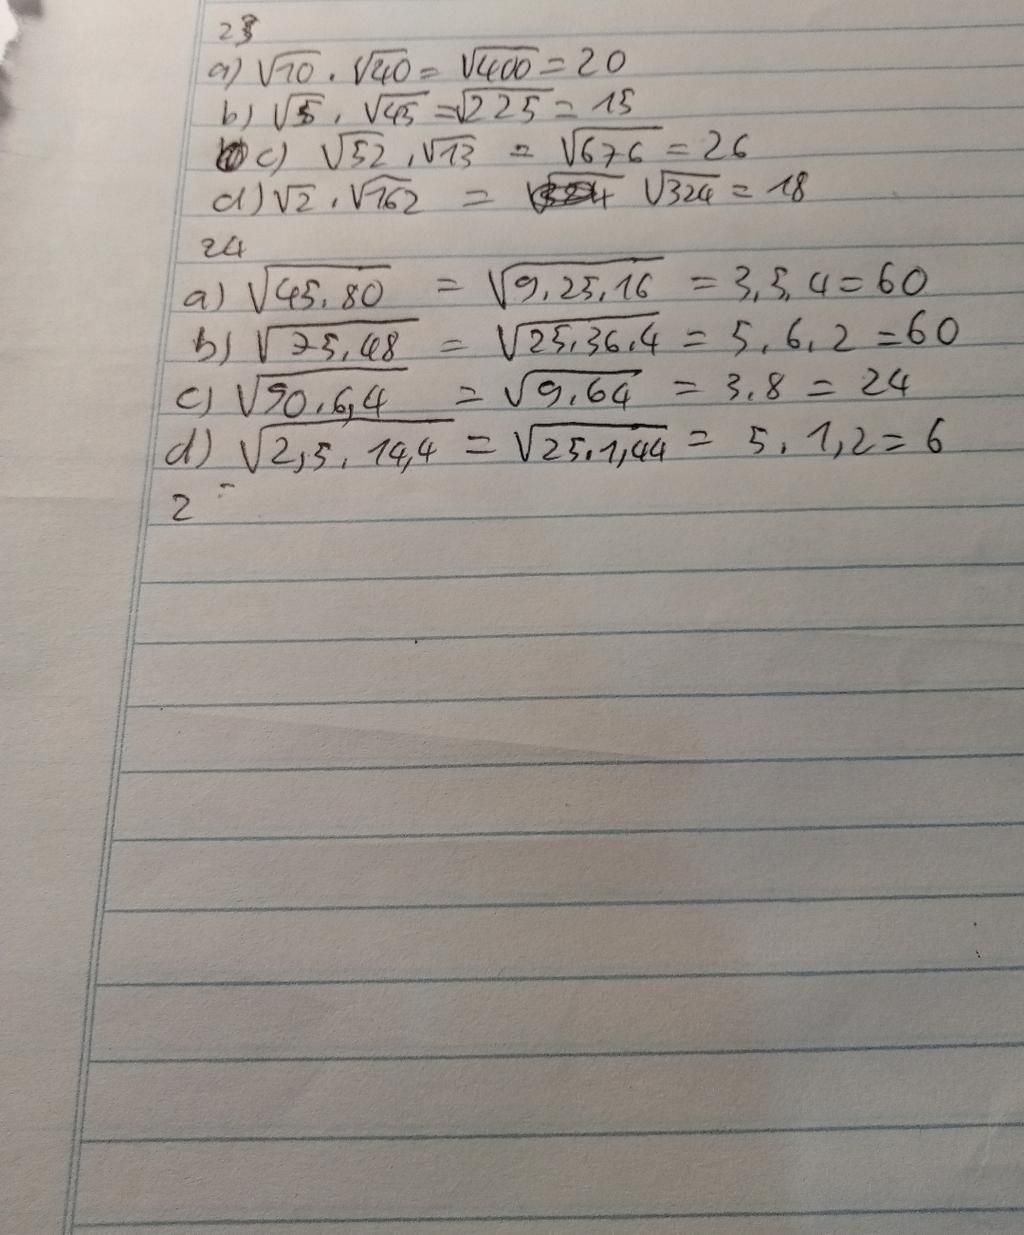 23
a) √10 . √40 = √400 = 20
b) √5 . √45 = √225 = 15
c) √52 . √13 = √676 = 26
d) √2 . √162 = √324 = 18
24
a) √45.80 = √9.25.16 = 3.5.4 = 60
b) √75.48 = √25.36.4 = 5.6.2 = 60
c) √90.6,4 = √9.64 = 3.8 = 24
d) √2,5.14,4 = √25.1,44 = 5.1,2 = 6
2